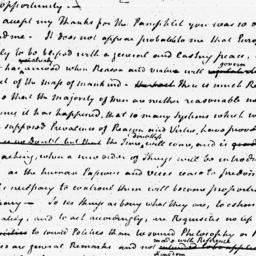 opportunity. —
accept my Thanks for the Pamphlet you was so o
me. It does not appear probable to me that Euro
ly to be blessed with a general and lasting peace,
relatively govern
has arrived when Reason and virtue will
of the map of mankind. there is much Re
that the majority of men are neither reasonable no
it has happened, that so many Systems which w
supposed Prevalence of Reason and Virtue, have proved
doubtless
the Time will come, and is
aching, when a new order of Things will be introdu
as the human Passions and vices cease to predom
necessary to controul them will become proportion
To see things as being what they are, to estem
and to act accordingly, are Requisites no less
to sound Politics than to sound Philosophy or R
made with Reference
are general Remarks and not intended to be applied
Kingdom